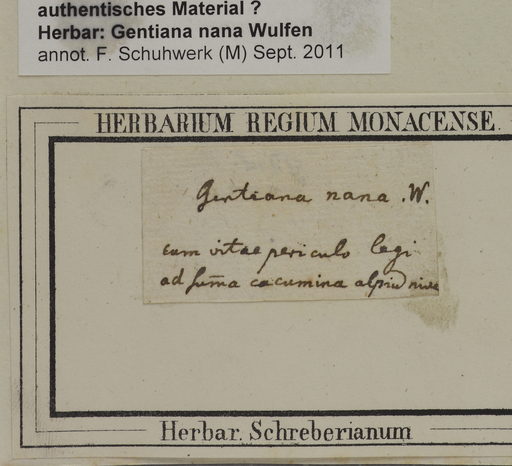 authentisches Material ?
Herbar: Gentiana nana Wulfen
annot. F. Schuhwerk (M) Sept. 2011
HERBARIUM REGIUM MONACENSE.
Gentiana nana .W.
cum vitae periculo legi
ad sum̄a cacumina alpiu nive
Herbar. Schreberianum